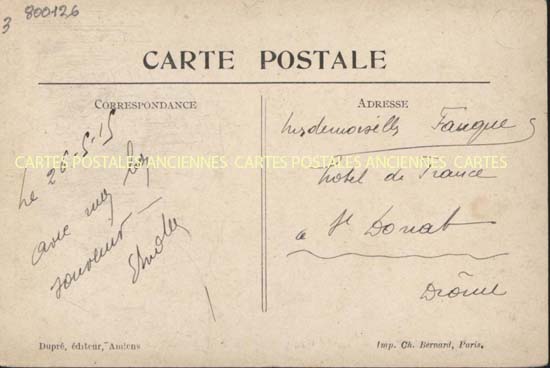 3
800126
CARTE POSTALE
CORRESPONDANCE
ADRESSE
Le 26-5-15
avec mes
souvenir
Mademoiselle Fangue
hôtel de France
a St Donat
Drôme
CARTES POSTALES ANCIENNES CARTES POSTALES ANCIENNES CARTES
Dupré, éditeur, Amiens
Imp. Ch. Bernard, Paris.